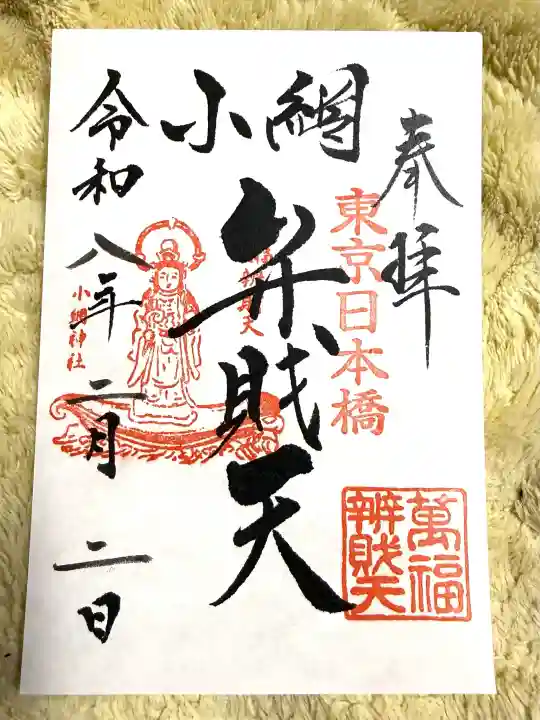 奉拝
東京日本橋
萬福
辨戝天
小網
弁財天
萬福辨財天
小網神社
令和八年二月二日